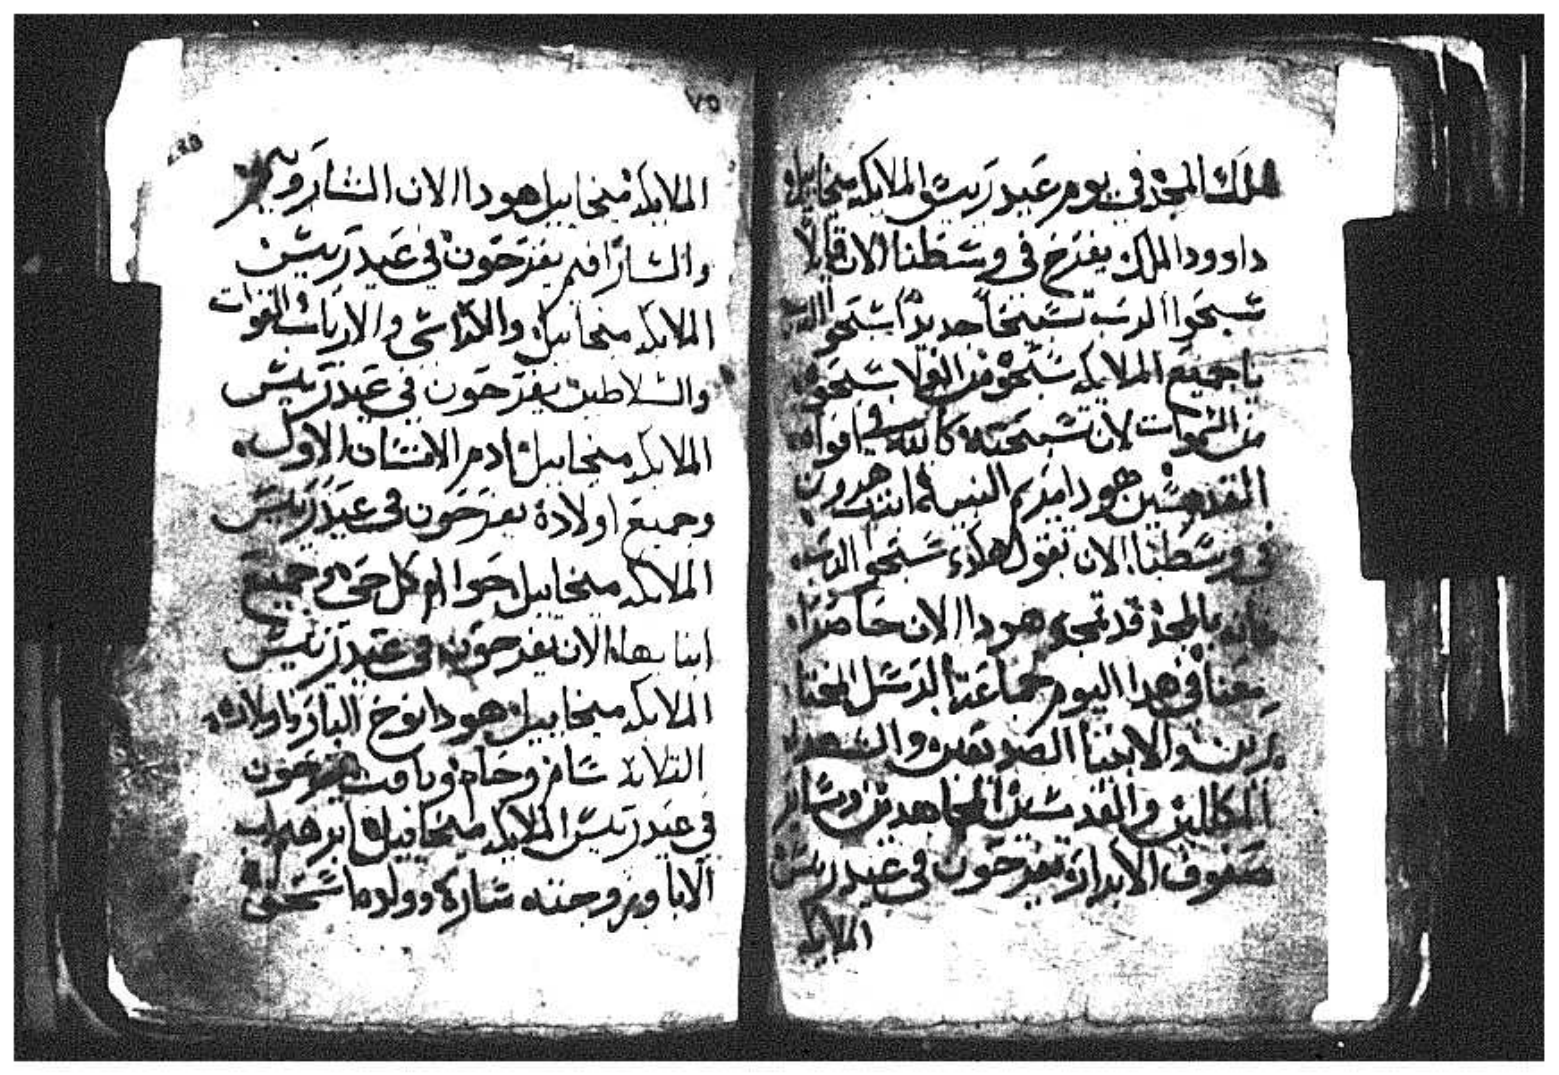 ملك المجد في يوم عيد رييس الملايكه ميخاييل
داوود الملك يفرح في وسطنا الان قايلا
سبحوا الرب تسبيحا جديدا سبحوا الرب
يا جميع الملايكه سبحوه من العلا سبحوه
من السموات لان تسبحته كاينه في افواه
القديسين هودا مريم النبيه اخت هرون
في وسطنا الان تقول هكذا سبحوا الرب
لانه بالمجد قد تمجد هودا الان حاضرا
معنا في هدا اليوم جماعة الرسل المختا
رين والانبيا الصديقين والشهدا
المكللين والقديسين المجاهدين وساير
صفوف الابرار يفرحون في عيد رييس
الملايكه
٧٥
الملايكه ميخاييل هودا الان الشاروبيم
والسارافيم يفرحون في عيد رييس
الملايكه ميخاييل والكراسي والارباب والقوات
والسلاطين يفرحون في عيد رييس
الملايكه ميخاييل ادم الانسان الاول
وجميع اولاده يفرحون في عيد رييس
الملايكه ميخاييل حوا ام كل حي وجميع
ابنايها الان يفرحون في عيد رييس
الملايكه ميخاييل هودا نوح البار واولاده
الثلاثه سام وحام ويافت يفرحون
في عيد رييس الملايكه ميخاييل ابرهيم اب
الابا وزوجته ساره وولدها اسحق